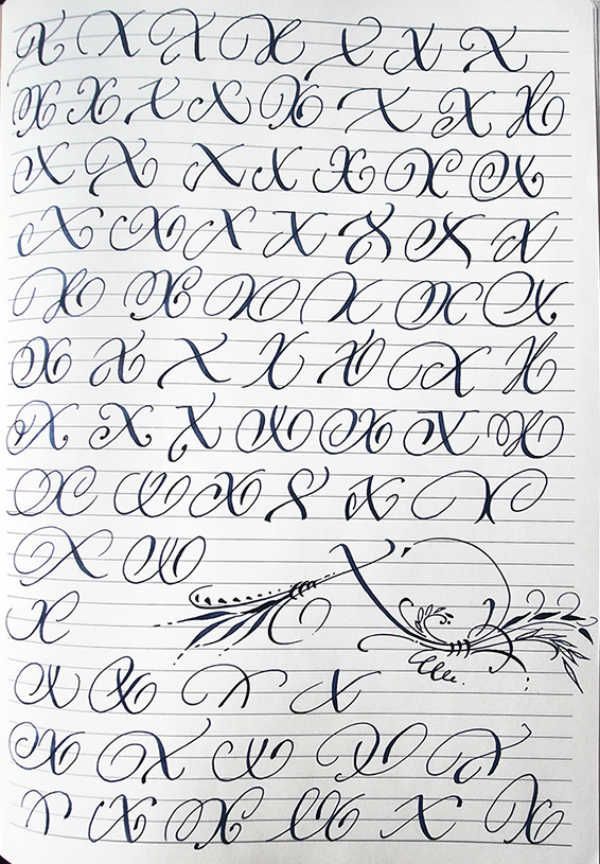 X X X X X X X
X X X X X X X X
X X X X X X X
X X X X X X X
X X X X X X
X X X X X X X
X X X X X X X
X X X X X X
X X X
X
X X X X
X X X X X
X X X X X X